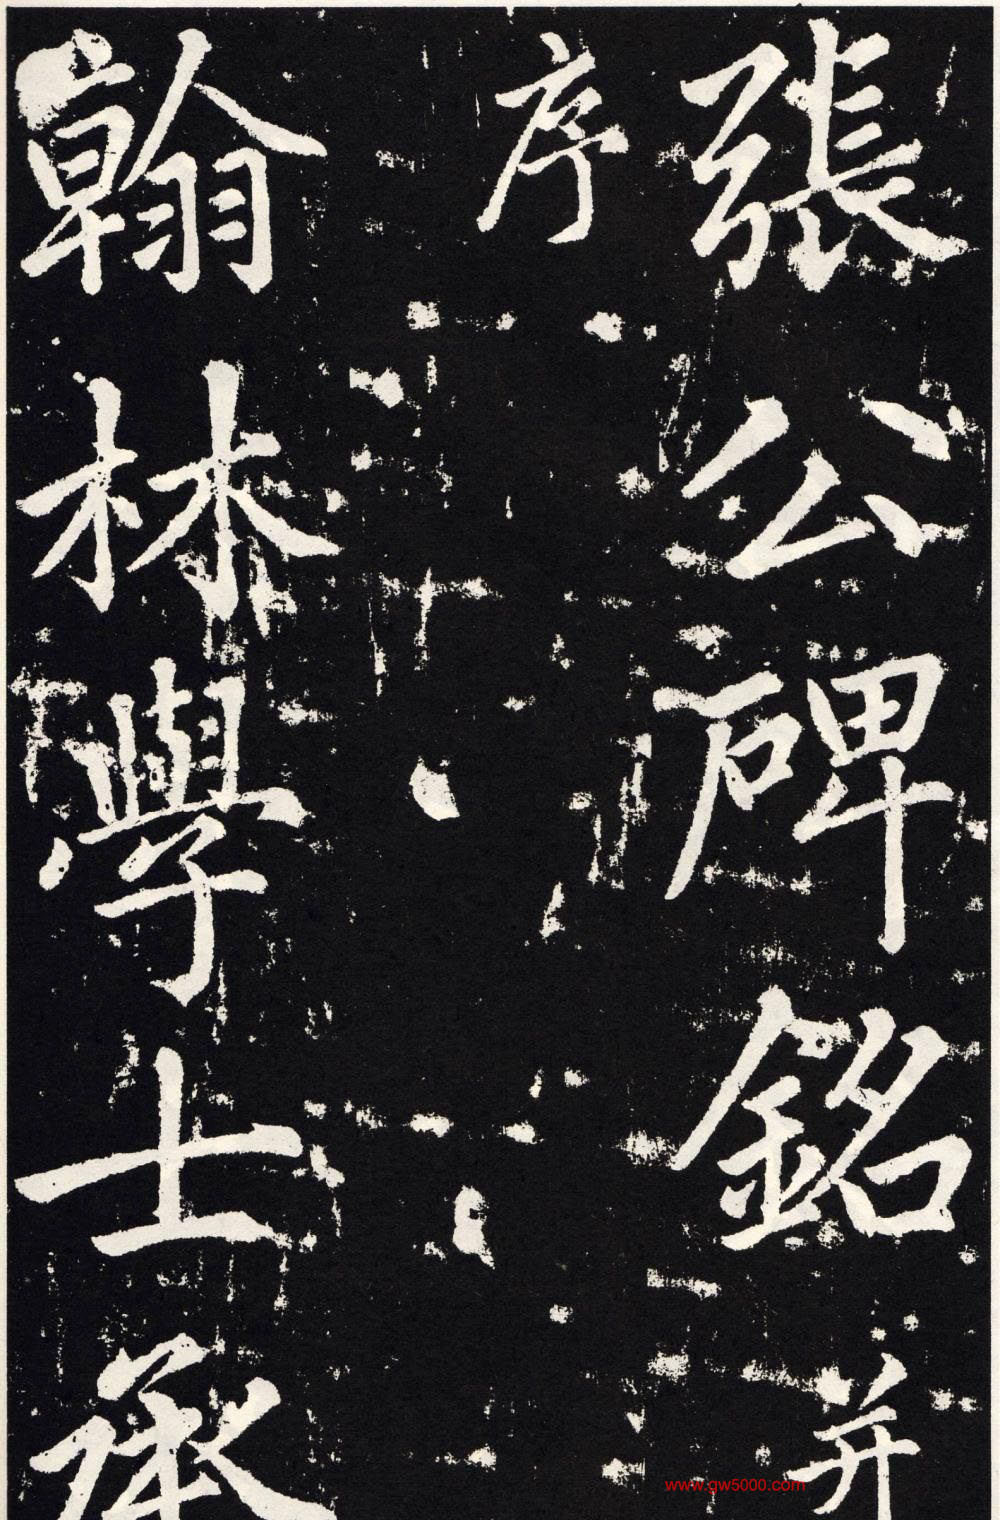 張公碑銘并
序
翰林學士承
www.gw5000.com